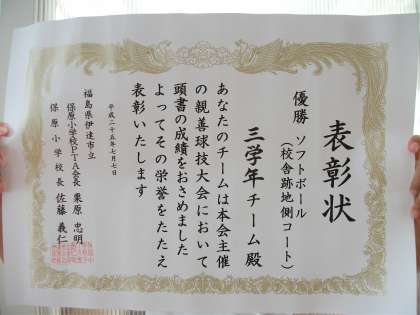 表彰状
優勝 ソフトボール
(校舎跡地側コート)
三学年チーム殿
あなたのチームは本会主催
の親善球技大会において
頭書の成績をおさめました
よってその栄誉をたたえ
表彰いたします
平成二十五年七月七日
福島県伊達市立
保原小学校PTA会長 栗原 忠明
保原小学校長 佐藤 義仁